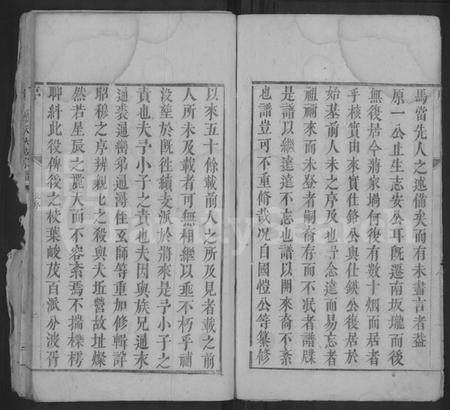 馬當先人之述備矣而有未盡言者益
原一公止生志安公耳既遷南坂瓏而後
無後居今蔣家塲何後有數十烟而居者
乎核實由來實仕鉻公與仕錤公後居於
始基前人未之序及也予念遠而易忘者
祖禰來而未登者嗣奇存而不泯者譜牒
是譜以繼遠遠不忘也譜以開來奇不紊
也譜豈可不重脩哉况自國愷公等纂修
以來五十餘載前人之所及見者載之前
人所未及載者可無相繼以垂不朽乎補
没墜於既往續支派於將來是予小子之
責也夫予小子之責也夫因與族兄通末
通裘通嵛弟通潯侄玄師等重加修輯許
昭穆之序辨親七之殺與夫坵塋故址燦
然若星辰之麗天而不容紊焉不揣檪樗
聊紏此役俾後之枝葉峻茂百派分流胥